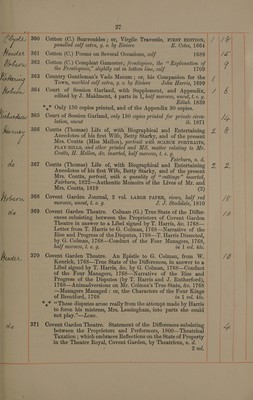 27
Clyde 360 Cotton (C.) Scarronides; or, Virgile Travestie, FIRST EDITION,
panelled calf extra, g. e. by Riviere E. Cotes, 1664 1 18
361 Cotton (C.) Poems on Several Occasions, calf 1689 15
Robson 362 Cotton (C.) Compleat Gamester, frontispiece, the "Explanation of
the Frontispiece," slightly cut in bottom line, calf 1709 9
Pickering 363 Country Gentleman's Vade Mecum; or, his Companion for the
Town, marbled calf extra, g. e. by Riviere John Harris, 1699 10
Robson 364 Court of Session Garland, with Supplement, and Appendix,
edited by J. Maidment, 4 parts in 1, half morocco, uncut, t. e. g. 1 6
Edinb. 1839
*** Only 150 copies printed, and of the Appendix 30 copies.
365 Court of Session Garland, only 190 copies printed for private circu-
lation, uncut ib. 1871 4
Harvey 366 Coutts (Thomas) Life of, with Biographical and Entertaining
Anecdotes of his first Wife, Betty Starky, and of the present
Mrs. Coutts (Miss Mellon), portrait and SCARCE PORTRAITS,
PLAY BILLS, and other printed and MS. matter relating to Mr.
Coutts, H. Mellon, &c. inserted, half morocco, t. e. g.
Fairburn, n. d. 2 8
do 367 Coutts (Thomas) Life of, with Biographical and Entertaining
Anecdotes of his first Wife, Betty Starky, and of the present
Mrs. Coutts, portrait, with a quantity of "cuttings" inserted,
Fairburn, 1822—Authentic Memoirs of the Lives of Mr. and
Mrs. Coutts, 1819 (2) 2 2
Robson 368 Covent Garden Journal, 2 vol. LARGE PAPER, views, half red
morocco, uncut, t. e. g. J. J. Stockdale, 1810 18
do 369 Covent Garden Theatre. Colman (G.) True State of the Differ-
ences subsisting between the Proprietors of Covent Garden
Theatre in answer to a Libel signed by T. Harris, &c. 1768—
Letter from T. Harris to G. Colman, 1768—Narrative of the
Rise and Progress of the Disputes, 1768—T. Harris Dissected,
by G. Colman, 1768—Conduct of the Four Managers, 1768,
half morocco, t. e. g. in 1 vol. 4to. 10
370 Covent Garden Theatre. An Epistle to G. Colman, from W.
Kenrick, 1768—True State of the Differences, in answer to a
Libel signed by T. Harris, &c. by G. Colman, 1768—Conduct
of the Four Managers, 1768—Narrative of the Rise and
Progress of the Disputes (by T. Harris and J. Rutherford),
1768—Animadversions on Mr. Colman's True State, &c. 1768
—Managers Managed: or, the Characters of the Four Kings
of Brentford, 1768 in 1 vol. 4to. 10
*** "These disputes arose really from the attempt made by Harris
to force his mistress, Mrs. Lessingham, into parts she could
not play."—Lowe.
do 371 Covent Garden Theatre. Statement of the Differences subsisting
between the Proprietors and Performers, 1800—Theatrical
Taxation; which embraces Reflections on the State of Property
in the Theatre Royal, Covent Garden, by Theatricus, n. d.
2 vol. 4